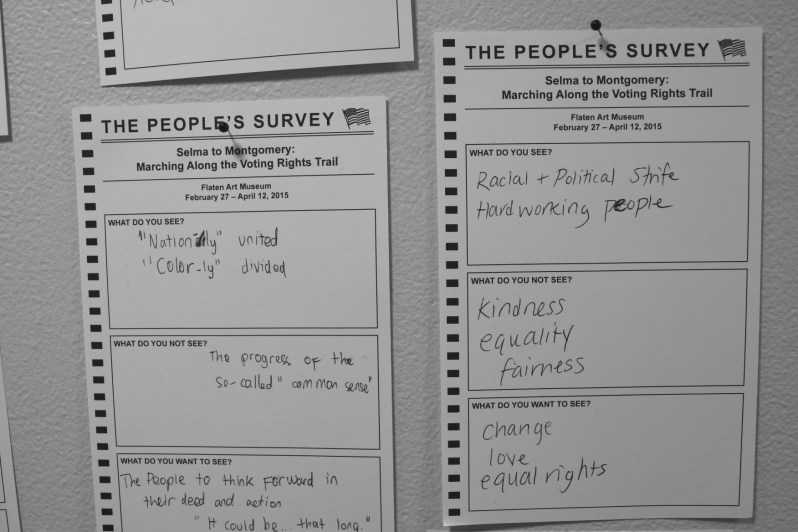 THE PEOPLE'S SURVEY
Selma to Montgomery:
Marching Along the Voting Rights Trail
Flaten Art Museum
February 27 – April 12, 2015
WHAT DO YOU SEE?
"Nationally" united
"Color-ly" divided
WHAT DO YOU NOT SEE?
The progress of the
so-called "common sense"
WHAT DO YOU WANT TO SEE?
The People to think forward in
their deed and action
"It could be... that long."
THE PEOPLE'S SURVEY
Selma to Montgomery:
Marching Along the Voting Rights Trail
Flaten Art Museum
February 27 – April 12, 2015
WHAT DO YOU SEE?
Racial + Political Strife
Hardworking people
WHAT DO YOU NOT SEE?
kindness
equality
fairness
WHAT DO YOU WANT TO SEE?
change
love
equal rights